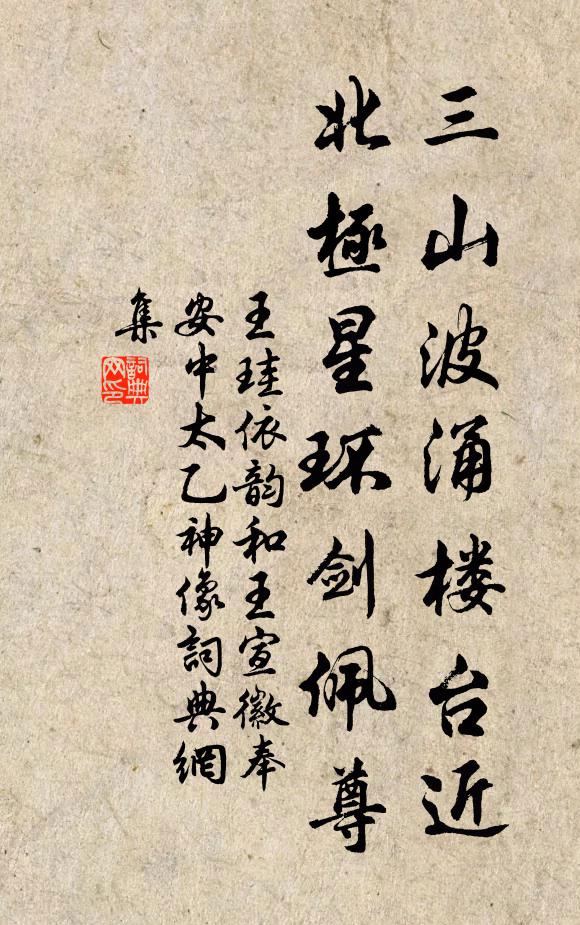 三山波涌楼台近
北極星环剑佩尊
王珪依韵和王宣徽奉
安中太乙神像詞典網
集
詞典網印